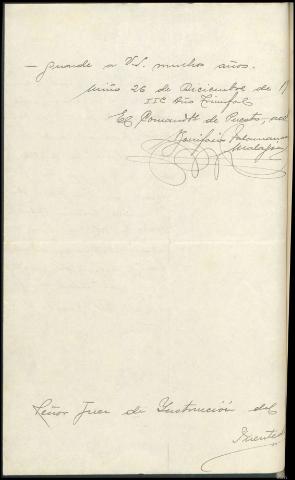 — guarde a V.S. muchos años.
Miño 26 de Diciembre de 19
IIIº Año Triunfal
El Comandte de Puesto, acc
Bonifacio
Señor Juez de Instrucción del